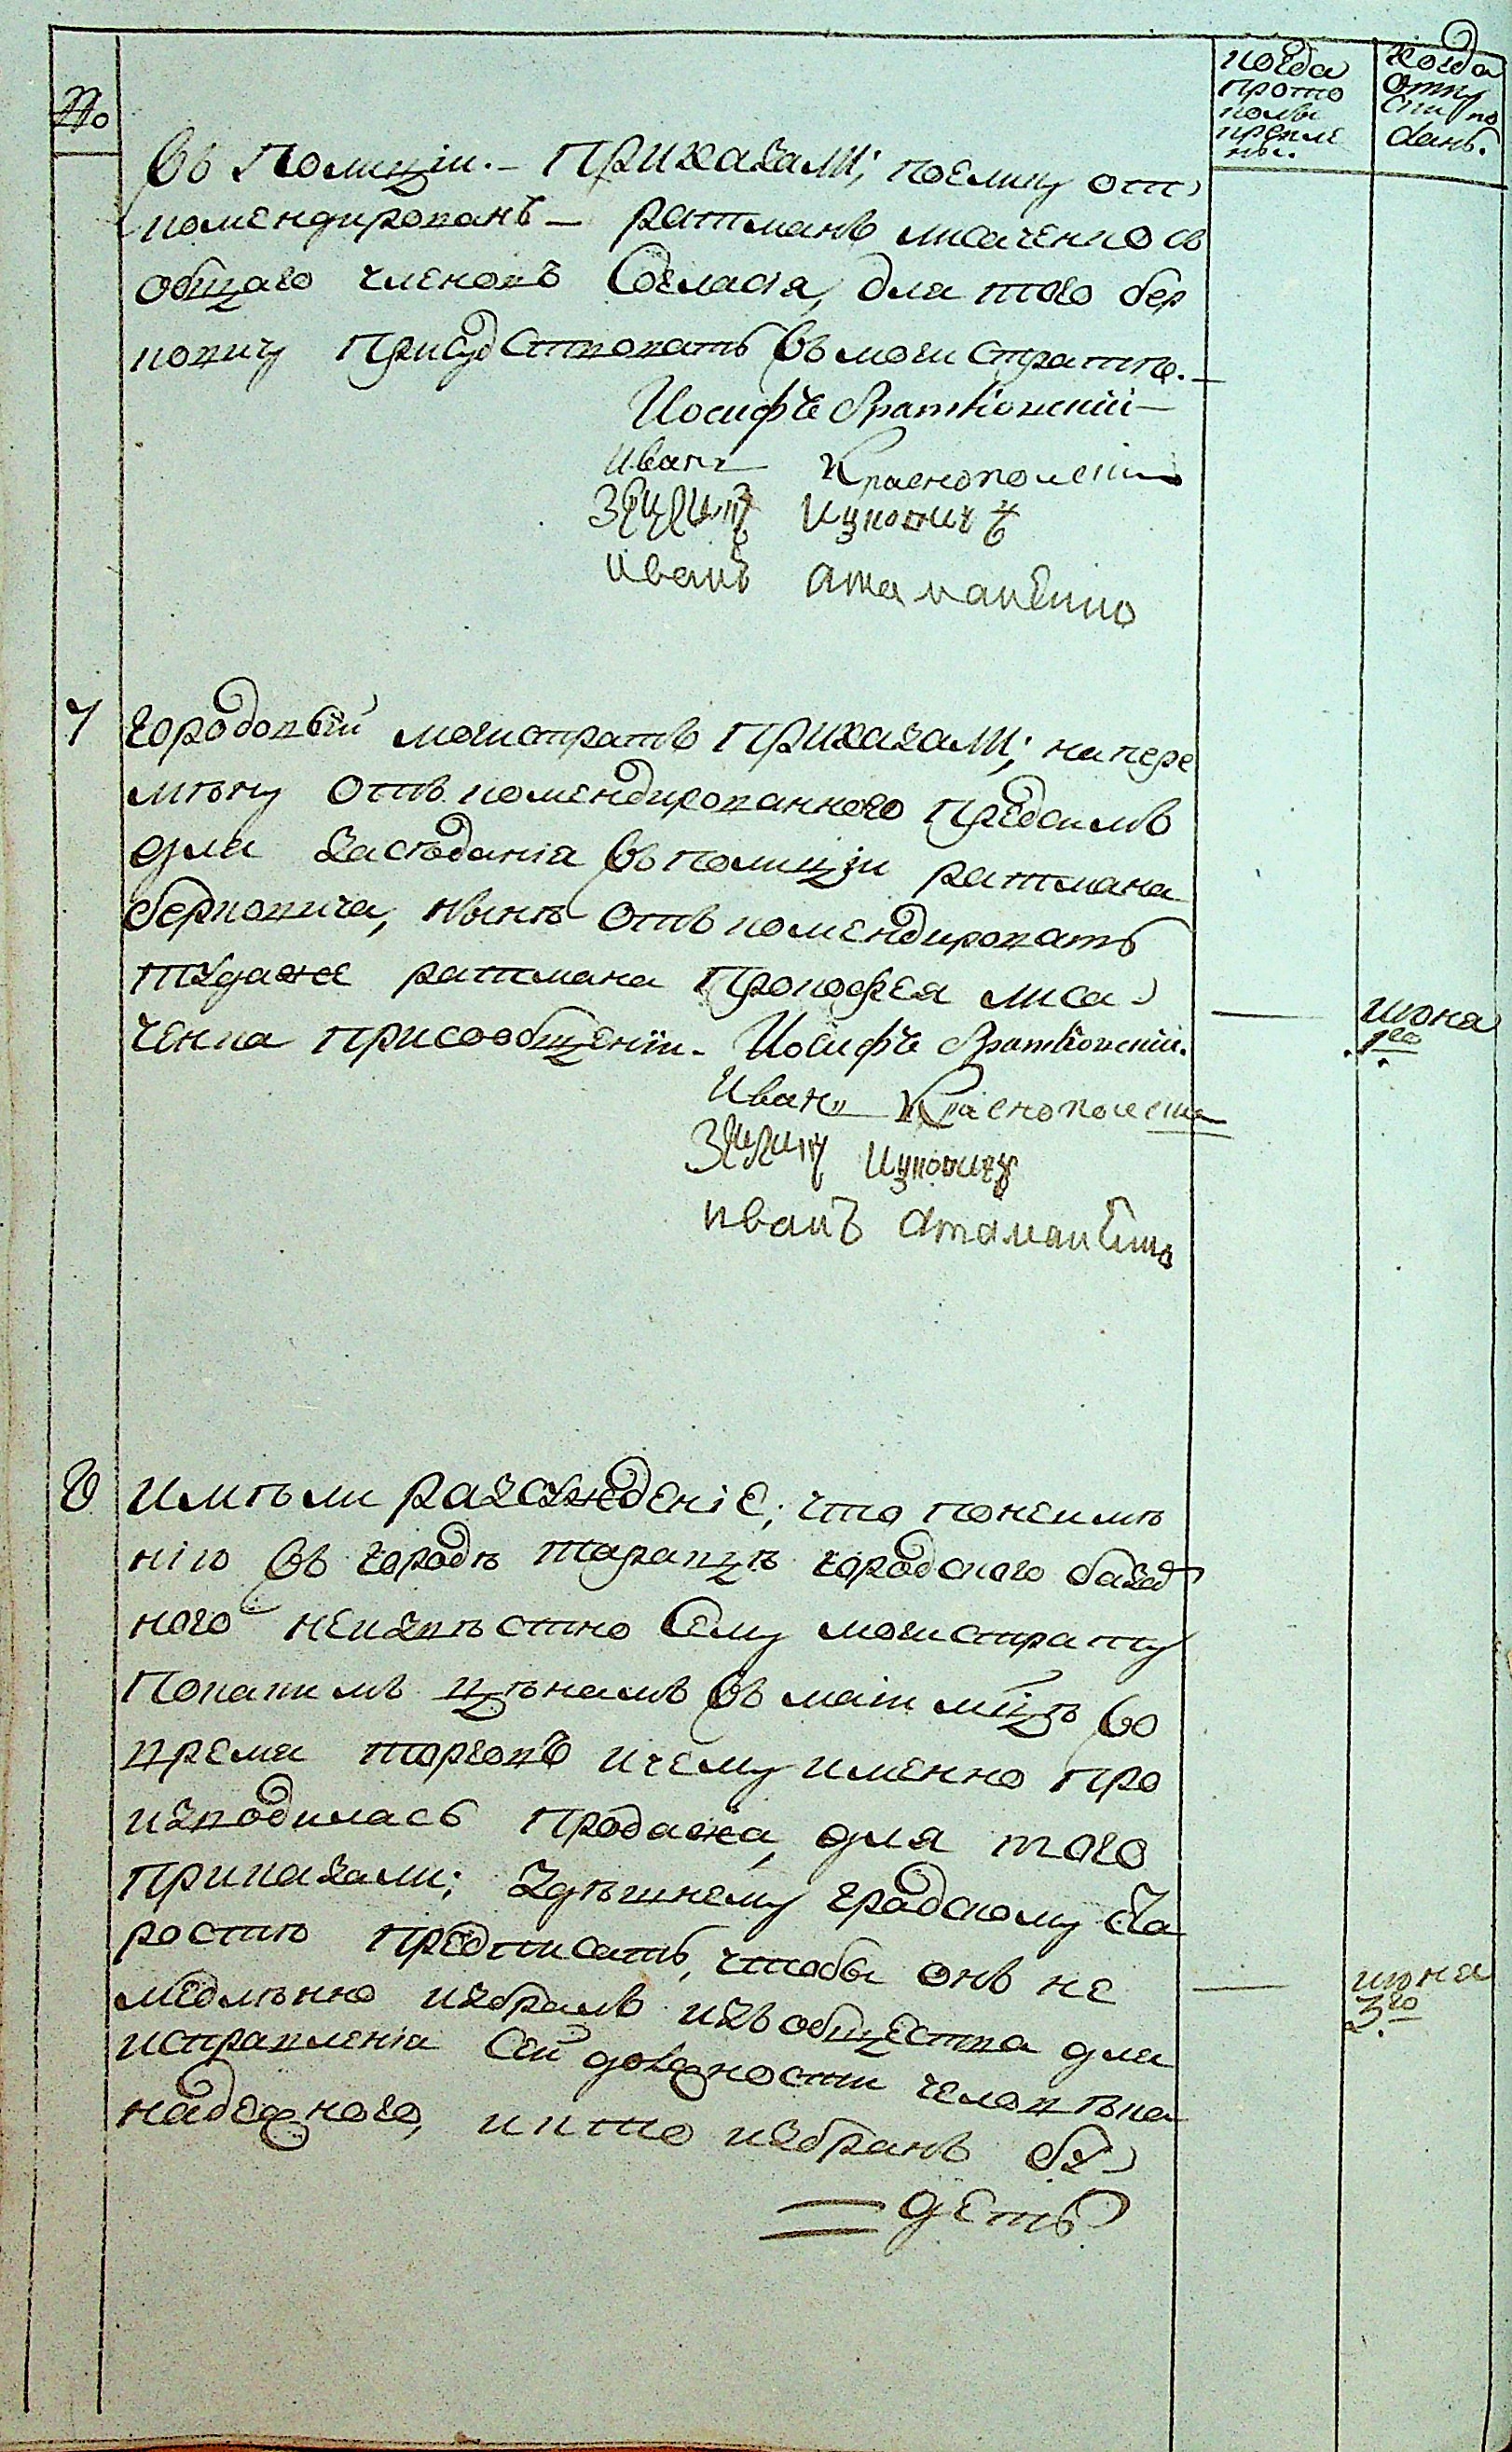 №
когда прото колы крепле ны.
когда отпу сти по лань.
въ Полиціи. – ПРИКАЗАЛИ; поелику от
комендированъ – ратманъ лисаченко съ
общаго членовъ Согласія, для того бер
ковичу Присудствовать въ магистратѣ. –
Иосифъ
Иванъ Краснопольскій
Ицковичъ
иванъ атаманенко
7 городовый магистратъ ПРИКАЗАЛИ; на пере
мѣну отъкомендированного Предсимъ
для Засѣданія въ полиціи ратмана
берковича, нынѣ отъкомендировать
туда же ратмана Прокофея лиса
ченка Присообщеніи. Иосифъ
Иванъ Краснопольскій
Ицковичъ
иванъ атаманенко
июня
1го
8 имѣли разсужденіе; что понеимѣ
нію въ городѣ таращѣ городского базар
ного неизвѣстно Сему магистрату
Покакимъ цѣнамъ въ маіи мцѣ во
время торговъ и чему именно про
изводилась Продажа, для того
Приказали; Здѣшнему градскому Ста
ростѣ Предписать, чтобы онъ не
медлѣнно избралъ изъ общества для
исправленія Сей должности человѣка
надежного, и кто избранъ бу
= детъ
июня
3го